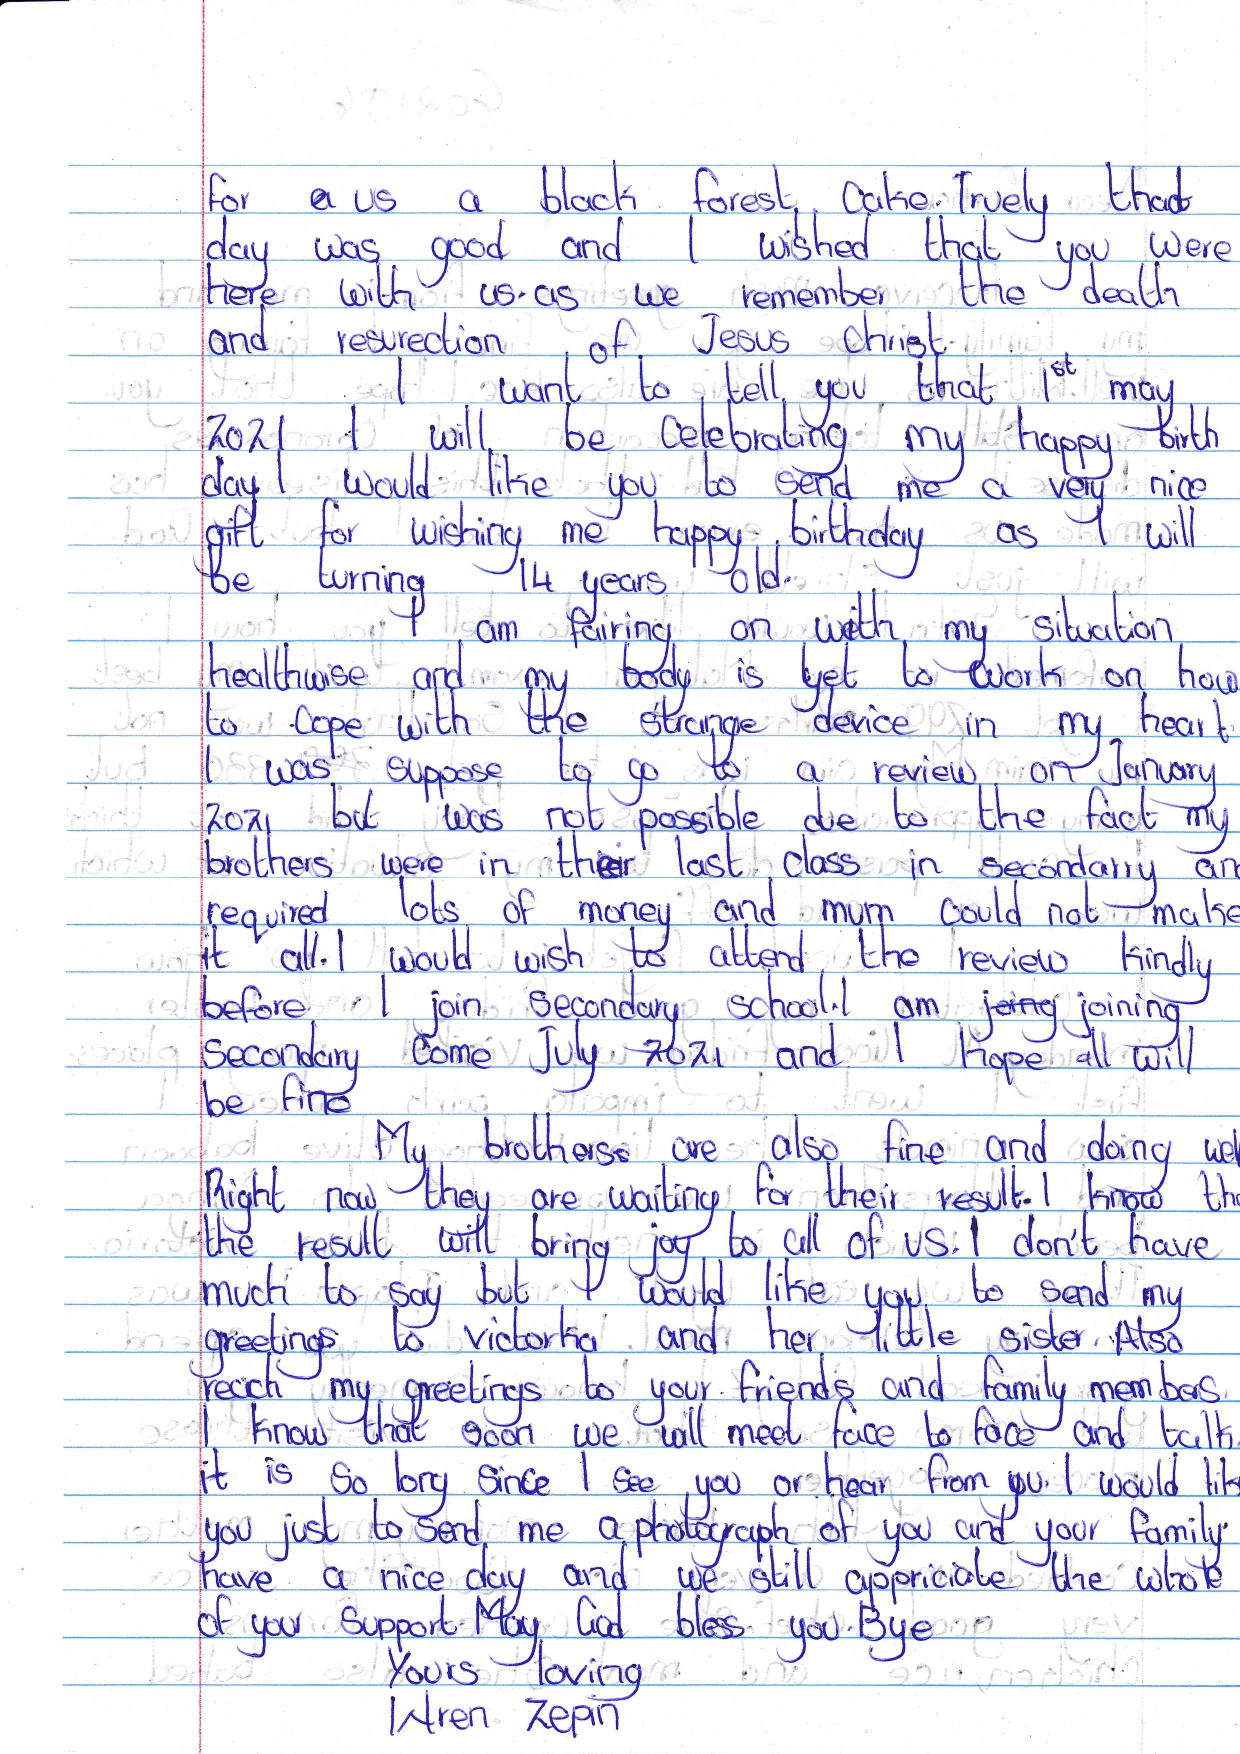 for a us a black forest Cake. Truely that
day was good and I wished that you were
here with us. as we remember the death
and resurection of Jesus Christ.
I want to tell you that 1st may
2021 I will be Celebrating my happy birth
day I would like you to send me a very nice
gift for wishing me happy birthday as I will
be turning 14 years old.
I am fairing on with my situation
healthwise and my body is yet to work on how
to Cope with the strange device in my heart.
I was suppose to go to a review on January
2021 but was not possible due to the fact my
brothers were in their last class in secondarry an
required lots of money and mum could not make
it all. I would wish to attend the review kindly
before I join secondary school. I am joing joining
Secondary Come July 2021 and I hope all will
be fine
My brotherss are also fine and doing wel
Right now they are waiting for their result. I know tha
the result will bring joy to all of us. I don't have
much to say but I would like you to send my
greetings to victorka and her little sister. Also
reach my greetings to your friends and family members.
I know that soon we will meet face to face and talk.
it is so long since I see you or hear from you. I would like
you just to send me a photograph of you and your family.
have a nice day and we still appriciate the whole
of your support. May God bless you. Bye
Yours loving
Wren Zepin